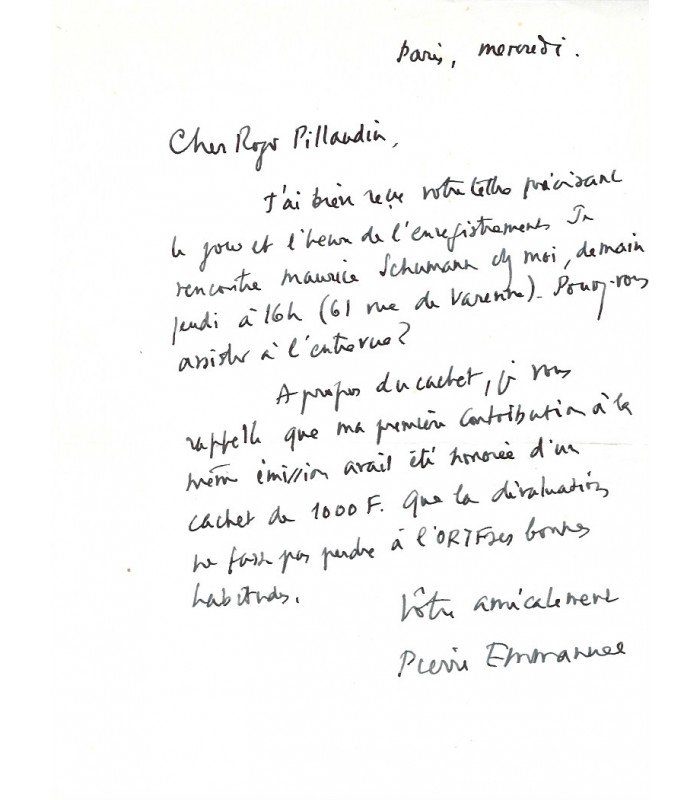 Paris, mercredi.
Cher Roger Pillaudin,
J'ai bien reçu votre lettre précisant
le jour et l'heure de l'enregistrement. Je
rencontre Maurice Schumann chez moi, demain
jeudi à 16h (61 rue de Varenne). Pouvez-vous
assister à l'entrevue ?
A propos du cachet, je vous
rappelle que ma première contribution à la
même émission avait été honorée d'un
cachet de 1000 F. Que la dévaluation
ne fasse pas perdre à l'ORTF ses bonnes
habitudes.
Vôtre amicalement
Pierre Emmanuel